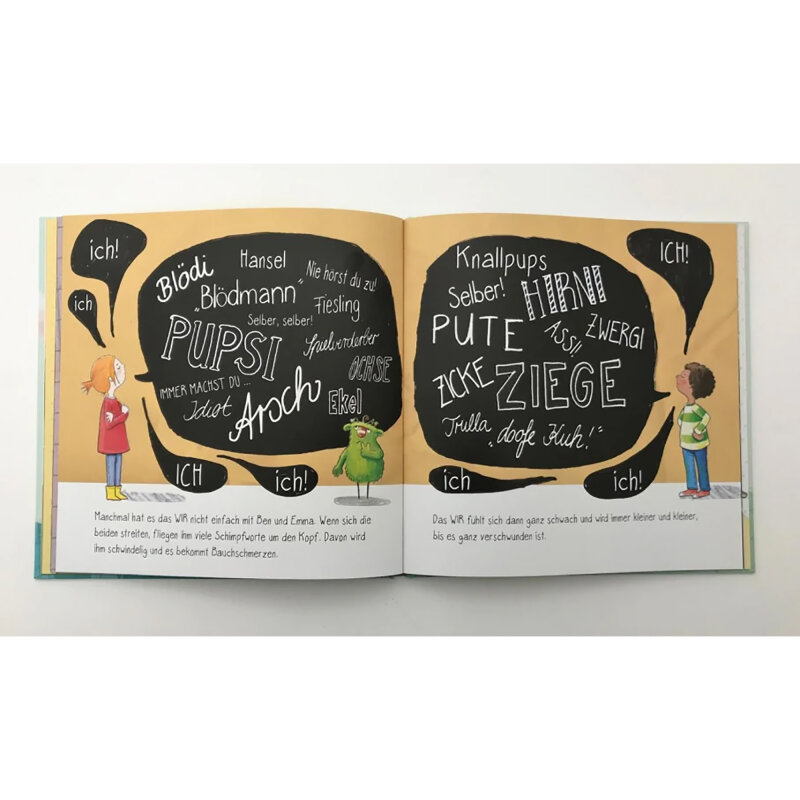 ich!
ich
Blödi
Hansel
Nie hörst du zu!
„Blödmann"
Fiesling
Selber, selber!
PUPSI
Spielverderber
OCHSE
IMMER MACHST DU...
Idiot
Arsch
Ekel
ICH
ich!
Manchmal hat es das WIR nicht einfach mit Ben und Emma. Wenn sich die
beiden streiten, fliegen ihm viele Schimpfworte um den Kopf. Davon wird
ihm schwindelig und es bekommt Bauchschmerzen.
Knallpups
Selber!
HIRNI
PUTE
ASSI!
ZWERG!
ZICKE
ZIEGE
Trulla
„doofe Kuh!"
ICH!
ich
ich!
Das WIR fühlt sich dann ganz schwach und wird immer kleiner und kleiner,
bis es ganz verschwunden ist.